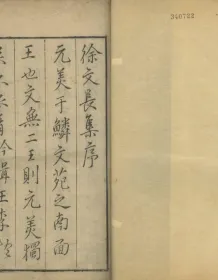 徐文長集序
元美于鱗文苑之南面
王也文無二王則元美獨
王李